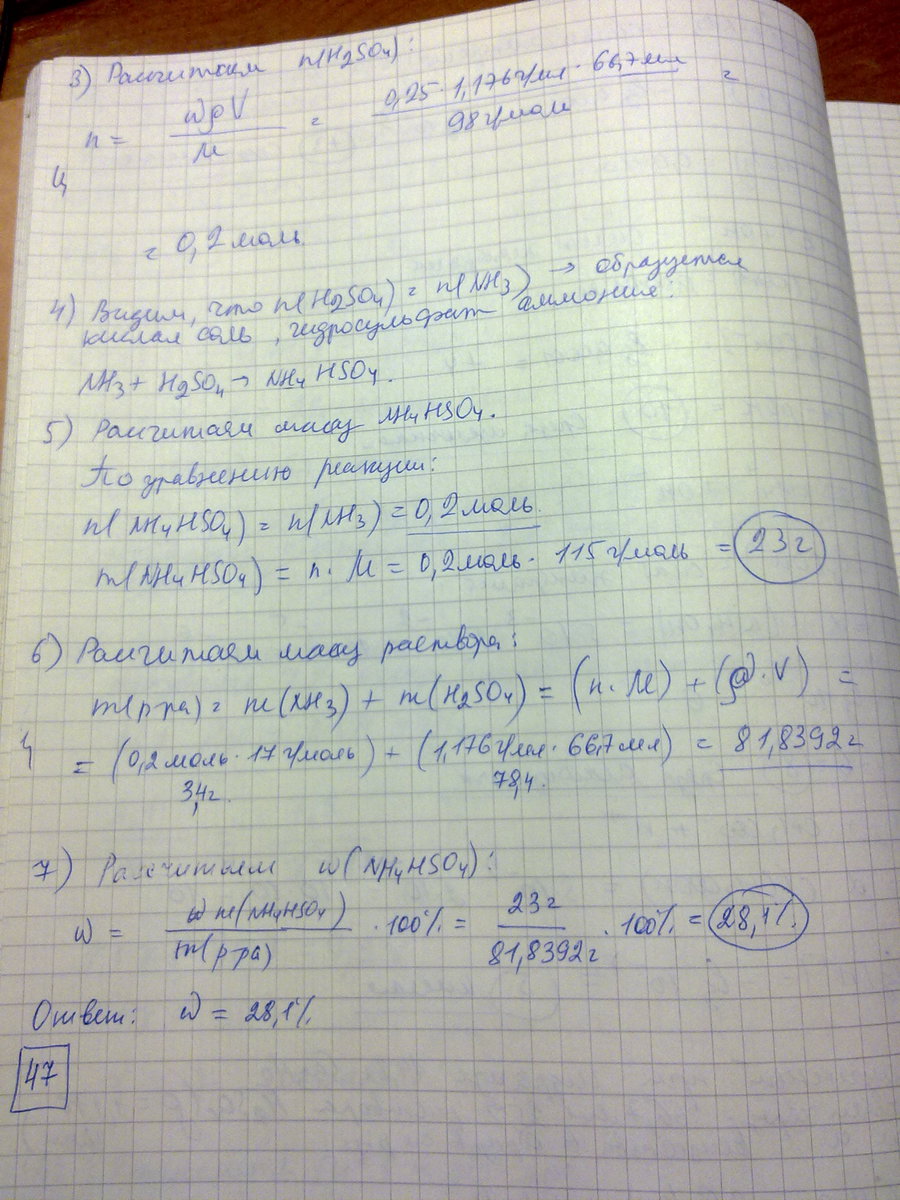 3) Рассчитаем n(H2SO4):
n = ωρV / M = 0,25 · 1,176 г/мл · 66,7 мл / 98 г/моль =
= 0,2 моль
4) Видим, что n(H2SO4) = n(NH3) → образуется
кислая соль, гидросульфат аммония:
NH3 + H2SO4 → NH4HSO4.
5) Рассчитаем массу NH4HSO4.
По уравнению реакции:
n(NH4HSO4) = n(NH3) = 0,2 моль
m(NH4HSO4) = n · M = 0,2 моль · 115 г/моль = 23 г
6) Рассчитаем массу раствора:
m(р-ра) = m(NH3) + m(H2SO4) = (n · M) + (ρ · V) =
= (0,2 моль · 17 г/моль) + (1,176 г/мл · 66,7 мл) = 81,8392 г
3,4 г. 78,4.
7) Рассчитаем ω(NH4HSO4):
ω = m(NH4HSO4) / m(р-ра) · 100% = 23 г / 81,8392 г · 100% = 28,1%
Ответ: ω = 28,1%
47